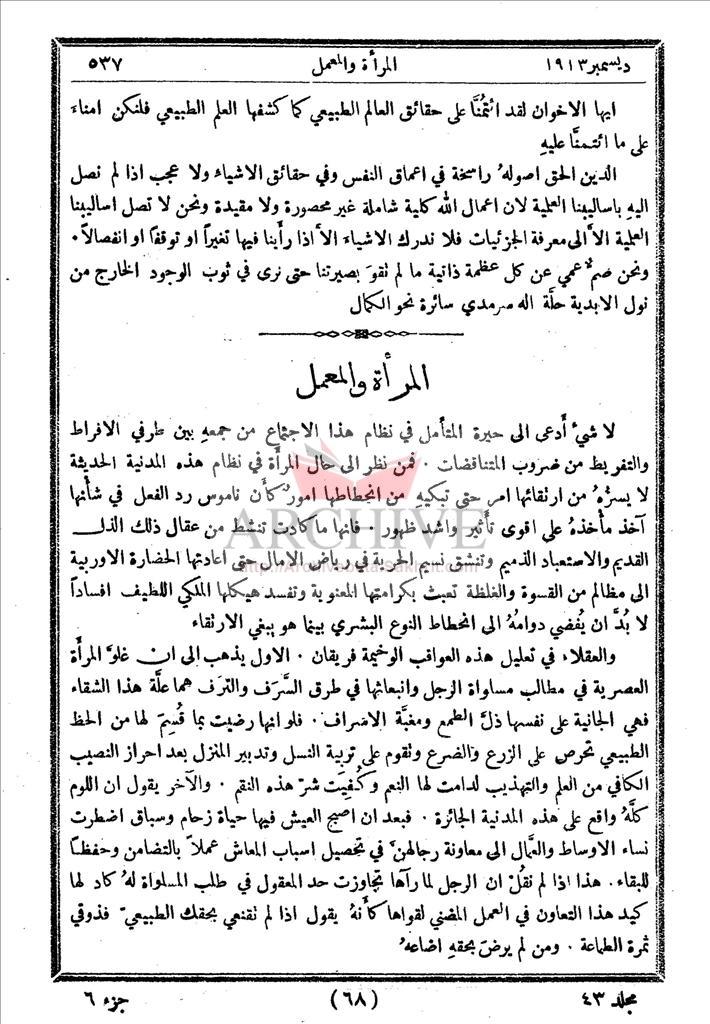 ديسمبر ١٩١٣
المرأة والمعمل
٥٣٧
ايها الاخوان لقد ائتُمنَّا على حقائق العالم الطبيعي كما كشفها العلم الطبيعي فلنكن امناء
على ما ائتمنَّا عليهِ
الدين الحق اصولهُ راسخة في اعماق النفس وفي حقائق الاشياء ولا عجب اذا لم نصل
اليهِ باساليبنا العلمية لان اعمال الله كلية شاملة غير محصورة ولا مقيدة ونحن لا تصل اساليبنا
العلمية الاَّ الى معرفة الجزئيات فلا ندرك الاشياء الاَّ اذا رأينا فيها تغيراً او توقفاً او انفصالاً ٠
ونحن صمٌّ عمي عن كل عظمة ذاتية ما لم نقوَ بصيرتنا حتى نرى في ثوب الوجود الخارج من
نول الابدية حلَّة اله سرمدي سائرة نحو الكمال
المرأة والمعمل
لا شيءَ أدعى الى حيرة المتأمل في نظام هذا الاجتماع من جمعهِ بين طرفي الافراط
والتفريط من ضروب المتناقضات ٠ فمن نظر الى حال المرأة في نظام هذه المدنية الحديثة
لا يسرُّهُ من ارتقائها امر حتى تبكيهِ من انحطاطها امورٌ كأن ناموس رد الفعل في شأنها
آخذ مأخذهُ على اقوى تأثير واشد ظهور ٠ فانها ما كادت تنشط من عقال ذلك الذل
القديم والاستعباد الذميم وتنشق نسيم الحرية في رياض الامال حتى اعادتها الحضارة الاوربية
الى مظالم من القسوة والغلظة تعبث بكرامتها المعنوية وتفسد هيكلها الملكي اللطيف افساداً
لا بُدَّ ان يُفضي دوامهُ الى انحطاط النوع البشري بينما هو يبغي الارتقاء
والعقلاء في تعليل هذه العواقب الوخيمة فريقان ٠ الاول يذهب الى ان غلوَّ المرأة
العصرية في مطالب مساواة الرجل وانبعاثها في طرق السَّرَف والترَف هما علَّة هذا الشقاء
فهي الجانية على نفسها ذلَّ الطمع ومغبَّة الاسراف ٠ فلو انها رضيت بما قُسِمَ لها من الحظ
الطبيعي تحرص على الزرع والضرع وتقوم على تربية النسل وتدبير المنزل بعد احراز النصيب
الكافي من العلم والتهذيب لدامت لها النعم وكُفِيَت شرَّ هذه النقم ٠ والآخر يقول ان اللوم
كلَّهُ واقع على هذه المدنية الجائرة ٠ فبعد ان اصبح العيش فيها حياة زحام وسباق اضطرت
نساء الاوساط والعمَّال الى معاونة رجالهنَّ في تحصيل اسباب المعاش عملاً بالتضامن وحفظاً
للبقاء ٠ هذا اذا لم نقُل ان الرجل لما رآها تجاوزت حد المعقول في طلب المساواة لهُ كاد لها
كيد هذا التعاون في العمل المضني لقواها كأنهُ يقول اذا لم تقنعي بحقك الطبيعيّ فذوقي
ثمرة الطماعة ٠ ومن لم يرضَ بحقهِ اضاعهُ
مجلد ٤٣
(٦٨)
جزء ٦
ARCHIVE